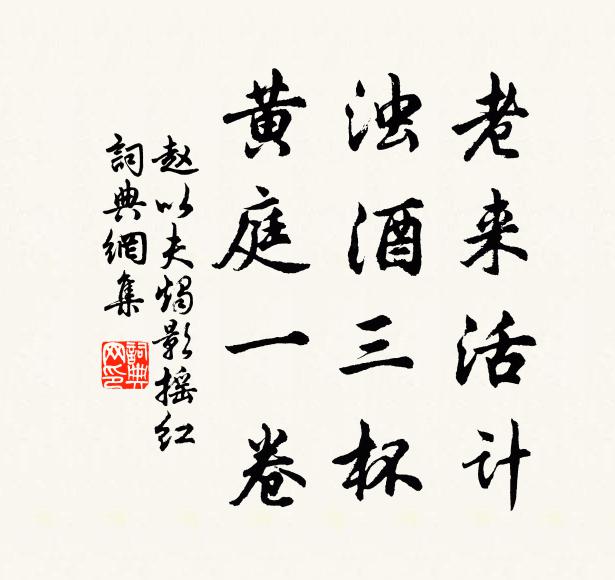 老来活计
浊酒三杯
黄庭一卷
赵以夫烛影摇红
詞典網集
詞典网印